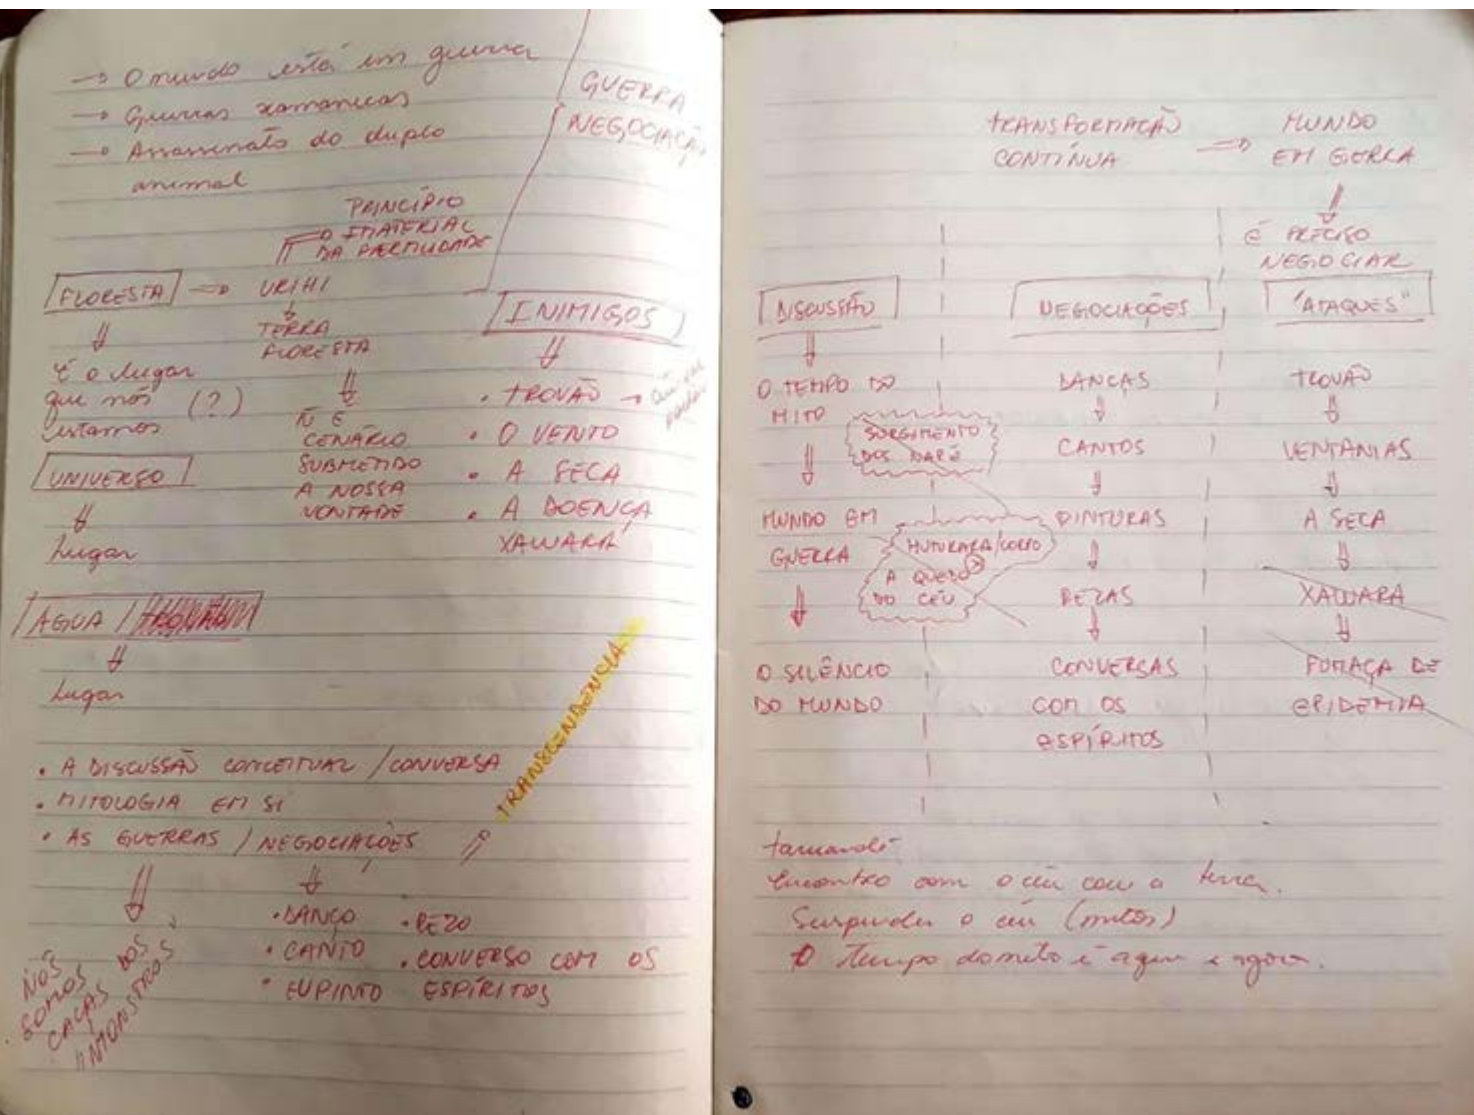 → O mundo está em guerra
→ Guerras xamanicas
→ Assassinato do duplo
animal
GUERRA
NEGOCIAÇÃO
PRINCÍPIO
IMATERIAL
DA FERTILIDADE
FLORESTA ⇒ URIHI
TERRA
FLORESTA
É o lugar
que nós (?)
estamos
Ñ É
CENÁRIO
SUBMETIDO
A NOSSA
VONTADE
UNIVERSO
Lugar
INIMIGOS
• TROVÃO →
• O VENTO
• A SECA
• A DOENÇA
XAWARA
ÁGUA /
Lugar
TRANSCENDÊNCIA
• A DISCUSSÃO CONCEITUAL / CONVERSA
• MITOLOGIA EM SI
• AS GUERRAS / NEGOCIAÇÕES
• DANÇO • REZO
• CANTO • CONVERSO COM OS
• EU PINTO ESPÍRITOS
NÓS
SOMOS
CAÇAS DOS
MONSTROS
TRANSFORMAÇÃO ⇒ MUNDO
CONTÍNUA EM GERRA
É PRECISO
NEGOCIAR
DISCUSSÃO
O TEMPO DO
MITO
MUNDO EM
GUERRA
O SILÊNCIO
DO MUNDO
SURGIMENTO
DOS
HUTUKARA/CORPO
A QUEDA
DO CÉU
NEGOCIAÇÕES
DANÇAS
CANTOS
PINTURAS
REZAS
CONVERSAS
COM OS
ESPÍRITOS
"ATAQUES"
TROVÃO
VENTANIAS
A SECA
XAWARA
FUMAÇA DE
EPIDEMIA
Encontro com o céu com a terra.
Suspender o céu (mitos)
O Tempo do mito é aqui e agora.